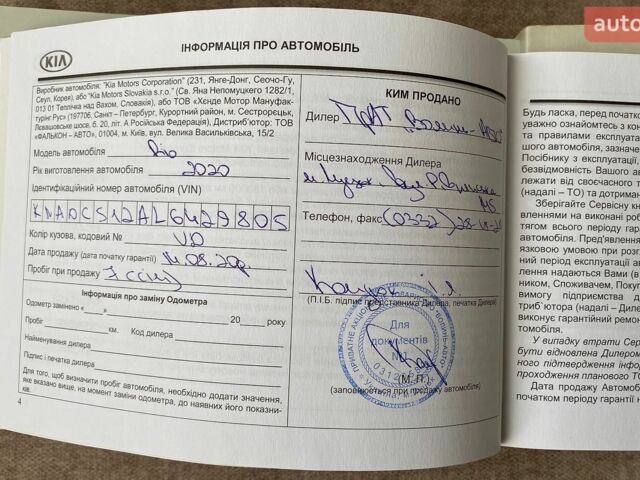 auto
KIA
ІНФОРМАЦІЯ ПРО АВТОМОБІЛЬ
Виробник автомобіля: "Kia Motors Corporation" (231, Янге-Донг, Сеочо-Гу,
Сеул, Корея), або "Kia Motors Slovakia s.r.o." (Св. Яна Непомуцкего 1282/1,
013 01 Теплічка над Вахом, Словакія), або ТОВ «Хєнде Мотор Мануфак-
турінг Рус» (197706, Санкт – Петербург, Курортний район, м. Сестрорєцьк,
Лєвашовське шосе, б. 20, літ. А Російська Федерація), Дистриб'ютор: ТОВ
«ФАЛЬКОН – АВТО», 01004, м. Київ, вул. Велика Васильківська, 15/2
Модель автомобіля Rio
Рік виготовлення автомобіля 2020
Ідентифікаційний номер автомобіля (VIN)
KNADC512AL6429805
Колір кузова, кодовий № UD
Дата продажу (дата початку гарантії) 14.08.20р.
Пробіг при продажу 7
Інформація про заміну Одометра
Одометр замінено « » 20 року
Пробіг км. Код дилера
Найменування дилера
Підпис і печатка дилера
Для того, щоб визначити пробіг автомобіля, необхідно додати значення,
яке вказано вище, на момент заміни одометра, до наявних його показни-
ків.
4
КИМ ПРОДАНО
Дилер ПрАТ "Волинь-Авто"
Місцезнаходження Дилера
м. Луцьк
Телефон, факс (0332)
(П.І.Б. підпис представника Дилера, печатка Дилера)
Для
документів
(М. П.)
(заповнюється при продажу автомобіля)
Будь ласка, перед початко
уважно ознайомтесь з ко
та правилами експлуата
шого автомобіля, зазначе
Посібнику з експлуатації.
безвідмовність Вашого а
лежати від своєчасного т
(надалі – ТО) та дотриман
Зберігайте Сервісну кн
вленнями на виконані роб
тягом всього періоду гара
автомобіля. Пред'явлення
язковою умовою при розгл
ний період експлуатації ав
лення надаються Вами (в
ником, Споживачем, Покуп
вимогу підприємства д
триб'ютора (надалі – Дилер
виконує гарантійний ремон
томобіля.
У випадку втрати Сер
бути відновлена Дилером
ного підтвердження інфор
проходження планового ТО
Дата продажу Автомобіл
початком періоду гарантії н